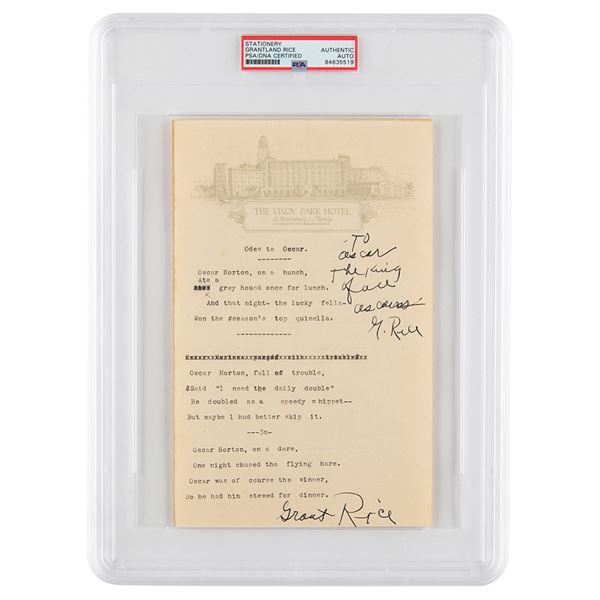 STATIONERY
GRANTLAND RICE
PSA/DNA CERTIFIED
AUTHENTIC
AUTO
84635519
PSA
THE VINOY PARK HOTEL
St. Petersburg Florida
Odes to Oscar.
--------
Oscar Horton, on a hunch,
Ate a
grey hound once for lunch.
And that night- the lucky fella-
Won the season's top quinella.
-------------
Oscar Horton, full of trouble,
Said "I need the daily double"
He doubled as a speedy whippet--
But maybe I had better skip it.
---3m-
Oscar Horton, on a dare,
One night chased the flying hare.
Oscar was of course the winner,
So he had him stewed for dinner.
To
Oscar
The King
of all
G. Rice
Grant Rice